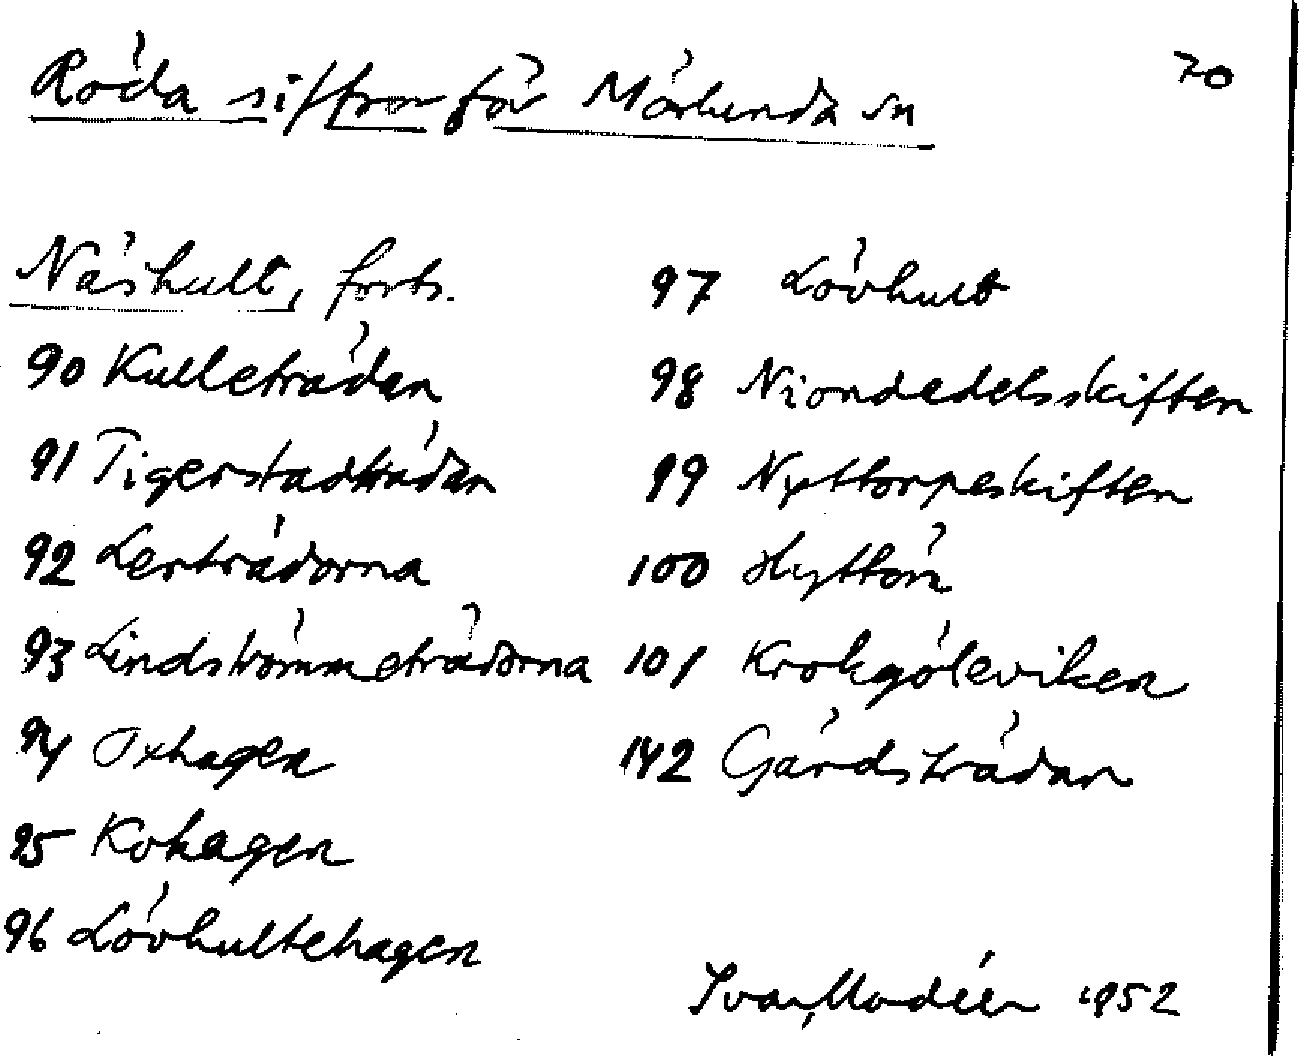 Röda siffror för Mörlunda sn
70
Näshult, forts.
90 Kulleträdan
91 Tigerstadträdan
92 Lerträdorna
93 Lindströmmeträdorna
94 Oxhagen
95 Kohagen
96 Lövhultehagen
97 Lövhult
98 Niondedelsskiften
99 Nyttorpeskiften
100 Hyttön
101 Krokgöleviken
142 Gårdsträdan
Ivar Modéer 1952